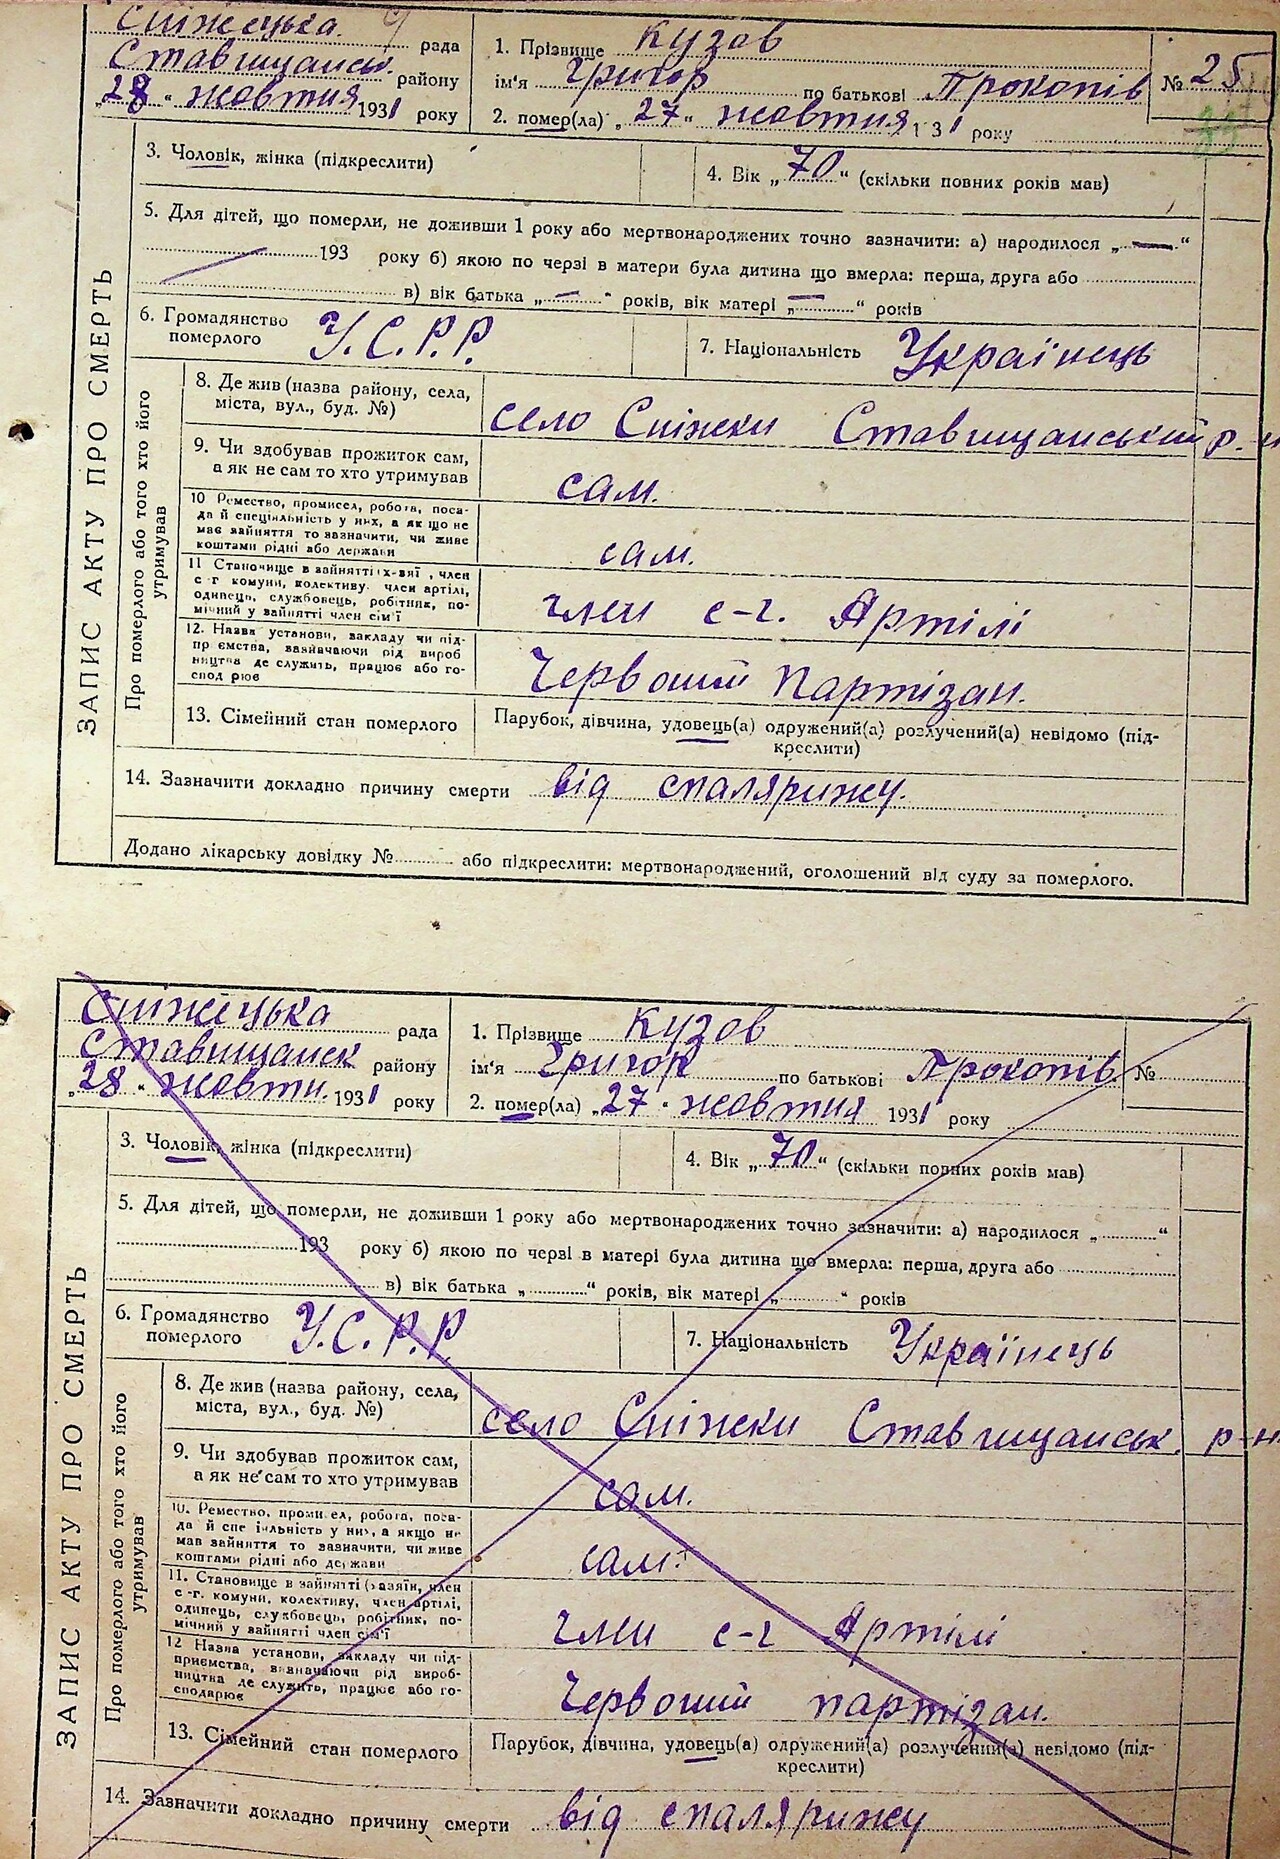 Сніжецька рада
Ставищанськ. району
„28“ жовтня 1931 року
1. Прізвище Кузов
ім'я Григор по батькові Прокопів
2. помер(ла) „27“ жовтня 131 року
№ 25
ЗАПИС АКТУ ПРО СМЕРТЬ
3. Чоловік, жінка (підкреслити)
4. Вік „70“ (скільки повних років мав)
5. Для дітей, що померли, не доживши 1 року або мертвонароджених точно зазначити: а) народилося „—“
193 року б) якою по черзі в матери була дитина що вмерла: перша, друга або
в) вік батька „—“ років, вік матері „—“ років
6. Громадянство
померлого
У.С.Р.Р.
7. Національність Українець
Про померлого або того хто його
утримував
8. Де жив (назва району, села,
міста, вул., буд. №)
село Сніжки Ставищанський р-н
9. Чи здобував прожиток сам,
а як не сам то хто утримував
сам.
10 Ремество, промисел, робота, поса-
да й спеціяльність у них, а як що не
має зайняття то зазначити, чи живе
коштами рідні або держави
сам.
11 Становище в зайнятті, член
с-г комуни, колективу, член артілі,
одинець, службовець, робітник, по-
мічний у зайнятті член сім'ї
член с-г. Артілі
12. Назва установи, закладу чи під-
пр ємства, зазначаючи рід вироб
ництва де служить, працює або го-
спод рює
Червоний партізан.
13. Сімейний стан померлого
Парубок, дівчина, удовець(а) одружений(а) розлучений(а) невідомо (під-
креслити)
14. Зазначити докладно причину смерти від спалярижу.
Додано лікарську довідку № або підкреслити: мертвонароджений, оголошений від суду за померлого.
Сніжецька рада
Ставищанськ району
„28“ жовтн. 1931 року
1. Прізвище Кузов
ім'я Григор по батькові Прокопів.
2. помер(ла) „27“ жовтня 1931 року
№
ЗАПИС АКТУ ПРО СМЕРТЬ
3. Чоловік, жінка (підкреслити)
4. Вік „70“ (скільки повних років мав)
5. Для дітей, що померли, не доживши 1 року або мертвонароджених точно зазначити: а) народилося „ “
193 року б) якою по черзі в матері була дитина що вмерла: перша, друга або
в) вік батька „ “ років, вік матері „ “ років
6. Громадянство
померлого
У.С.Р.Р.
7. Національність Українець
Про померлого або того хто його
утримував
8. Де жив (назва району, села,
міста, вул., буд. №)
село Сніжки Ставищанськ. р-н
9. Чи здобував прожиток сам,
а як не сам то хто утримував
сам.
10. Ремество, проми ел, робота, поса-
да й спе іяльність у них, а якщо не
має зайняття то зазначити, чи живе
коштами рідні або держави
сам.
11. Становище в зайнятті (хазяїн, член
с-г. комуни, колективу, член артілі,
одинець, службовець, робітник, по-
мічний у зайнятті член сім'ї
член с-г Артілі
12 Назва установи, закладу чи під-
приємства, зазначаючи рід вироб-
ництва де служить, працює або го-
сподарює
Червоний партізан.
13. Сімейний стан померлого
Парубок, дівчина, удовець(а) одружений(а) розлучений(а) невідомо (під-
креслити)
14. Зазначити докладно причину смерти від спалярижу